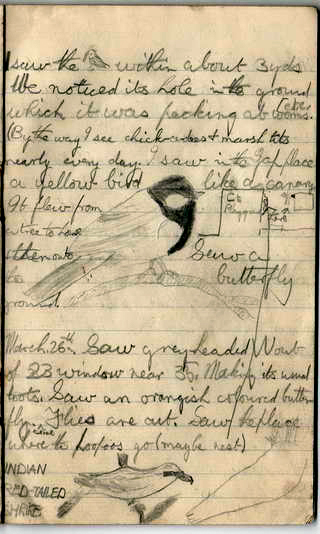 I saw the within about 3 yds
We noticed its hole in the ground
which it was pecking at worms.
(By the way I see chickadees & marsh tits
nearly every day. I saw in the place
a yellow bird like a canary
It flew from
a tree to
then onto
Saw a
butterfly
ground.
March. 26th. Saw grey headed
of 23 window near 35. Making its usual
toots. Saw an orangish coloured butter-
fly. Flies are out. Saw the place
where the hoopoes go (maybe nest)
INDIAN
RED-TAILED
SHRIKE